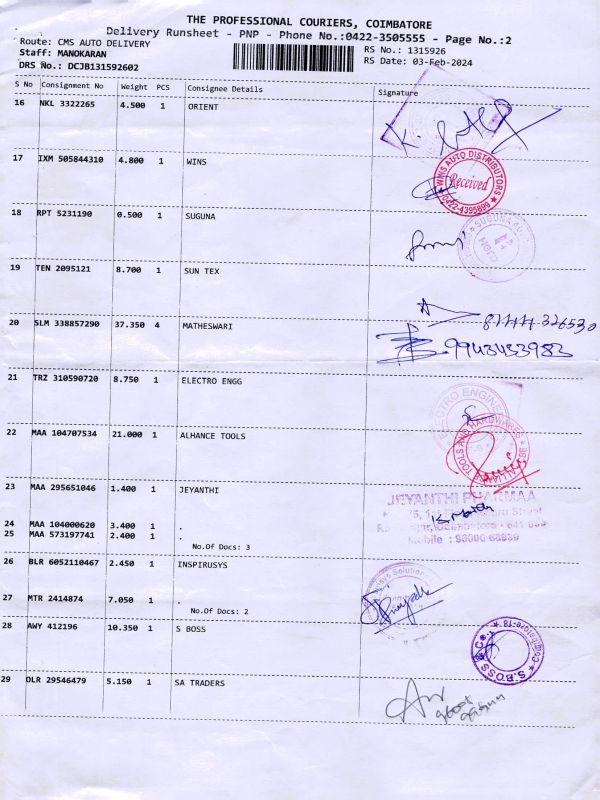 THE PROFESSIONAL COURIERS, COIMBATORE
Delivery Runsheet - PNP - Phone No.:0422-3505555 - Page No.:2
Route: CMS AUTO DELIVERY
RS No.: 1315926
Staff: MANOKARAN
RS Date: 03-Feb-2024
DRS No.: DCJB131592602
S No Consignment No Weight PCS Consignee Details Signature
16 NKL 3322265 4.500 1 ORIENT
17 IXM 505844310 4.800 1 WINS
WINS AUTO DISTRIBUTORS
Received
0422-4395899
18 RPT 5231190 0.500 1 SUGUNA
SUGUNA
19 TEN 2095121 8.700 1 SUN TEX
20 SLM 338857290 37.350 4 MATHESWARI
9943433983
21 TRZ 310590720 8.750 1 ELECTRO ENGG
ELECTRO ENGINEE
22 MAA 104707534 21.000 1 ALHANCE TOOLS
TOOLS AND HARDWARES
23 MAA 295651046 1.400 1 JEYANTHI
JEYANTHI PHARMAA
Street
Coimbatore - 641
Mobile : 98000 68939
24 MAA 104000620 3.400 1 .
25 MAA 573197741 2.400 1 .
No.Of Docs: 3
26 BLR 6052110467 2.450 1 INSPIRUSYS
Solution
27 MTR 2414874 7.050 1 .
No.Of Docs: 2
28 AWY 412196 10.350 1 S BOSS
S.BOSS & Co.
Coimbatore-18
29 DLR 29546479 5.150 1 SA TRADERS